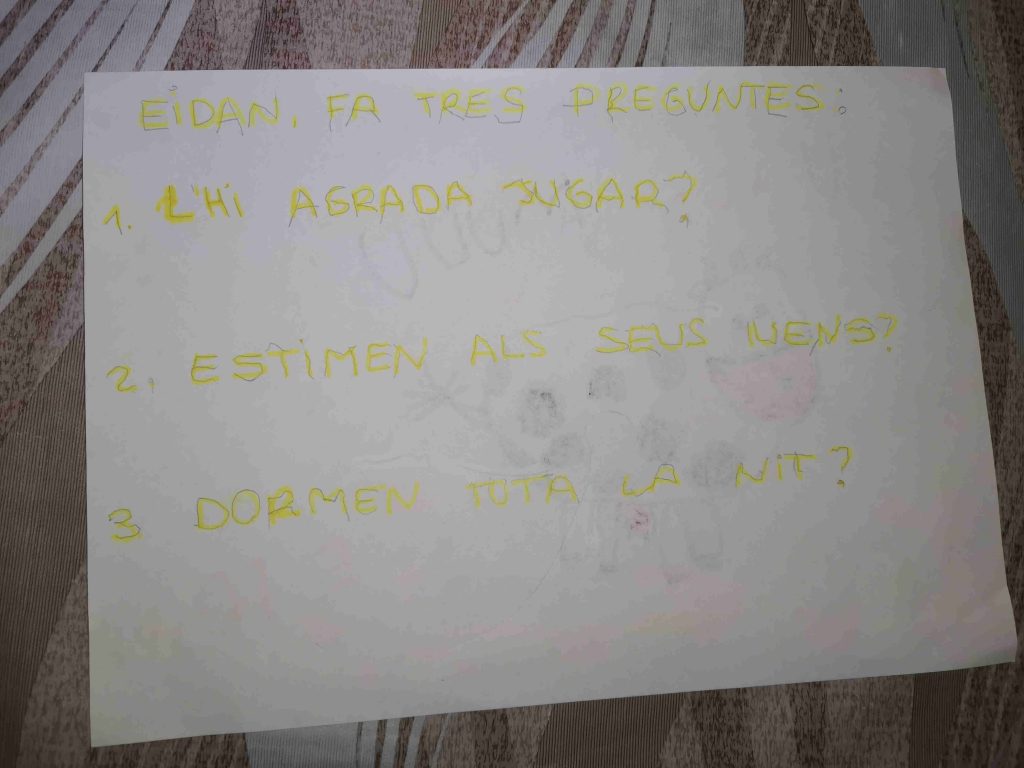 EiDAN, FA TRES PREGUNTES:
1. L'Hi AGRADA JUGAR?
2. ESTiMEN ALS SEUS IUENS?
3 DORMEN TOTA LA NiT?